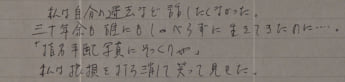 私は自分の過去など話したくなかった。
三十年余も誰にもしゃべらずに生きてきたのに……。
「指名手配写真にそっくりや」
私は抵損を打ち消して笑って見せた。